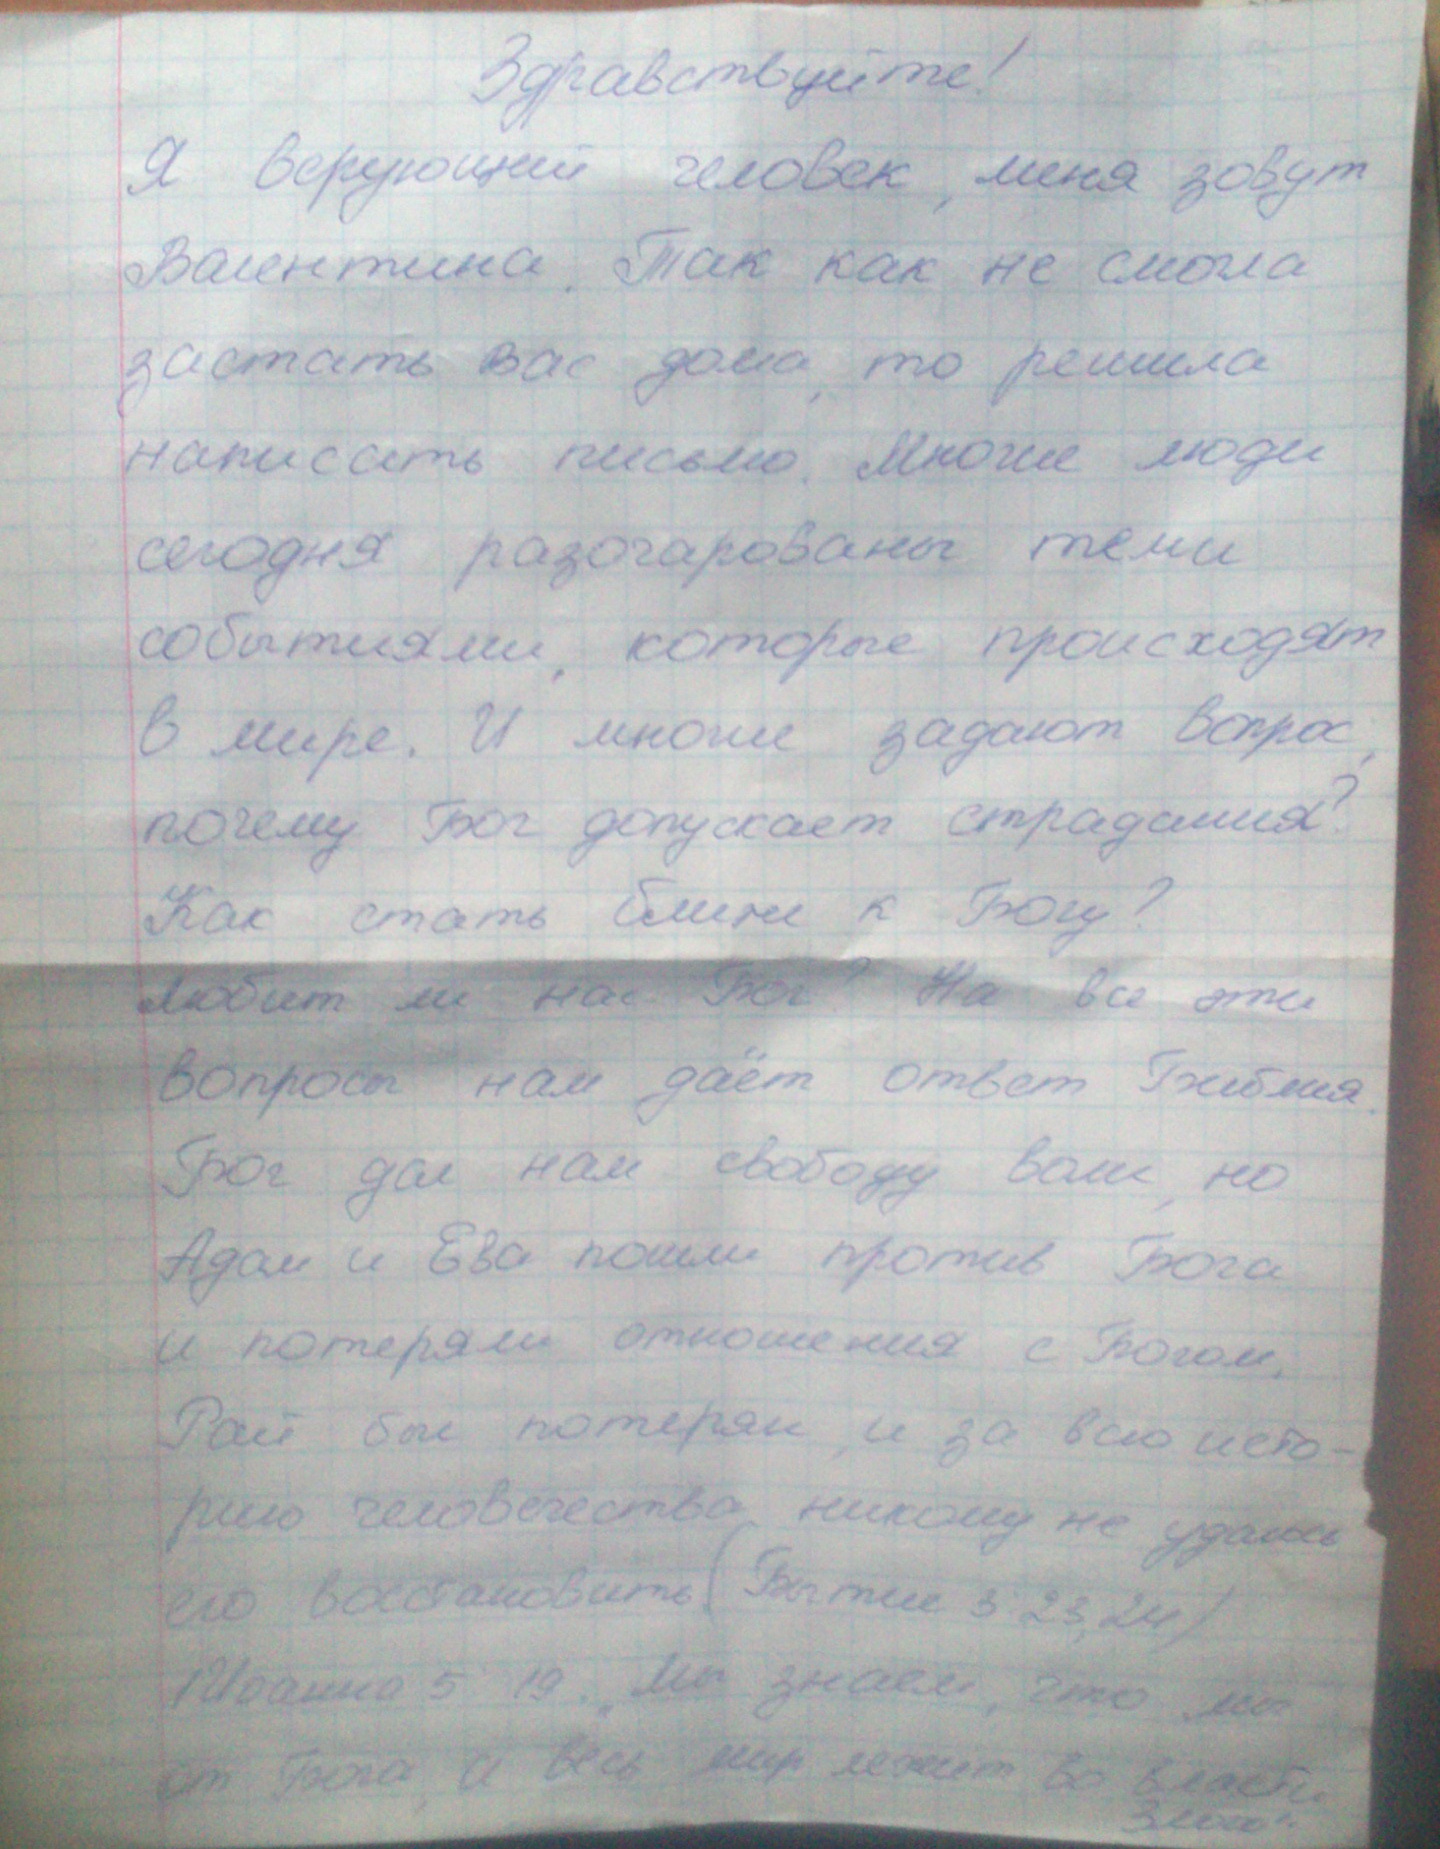 Здравствуйте!
Я верующий человек, меня зовут
Валентина. Так как не смогла
застать вас дома, то решила
написать письмо. Многие люди
сегодня разочарованы теми
событиями, которые происходят
в мире. И многие задают вопрос,
почему Бог допускает страдания?
Как стать ближе к Богу?
Любит ли нас Бог? На все эти
вопросы нам даёт ответ Библия.
Бог дал нам свободу воли, но
Адам и Ева пошли против Бога
и потеряли отношения с Богом.
Рай был потерян, и за всю исто-
рию человечества никому не удалось
его восстановить (Бытие 3:23,24)
1 Иоанна 5:19. „Мы знаем, что мы
от Бога, а весь мир лежит во власти
Злого“.